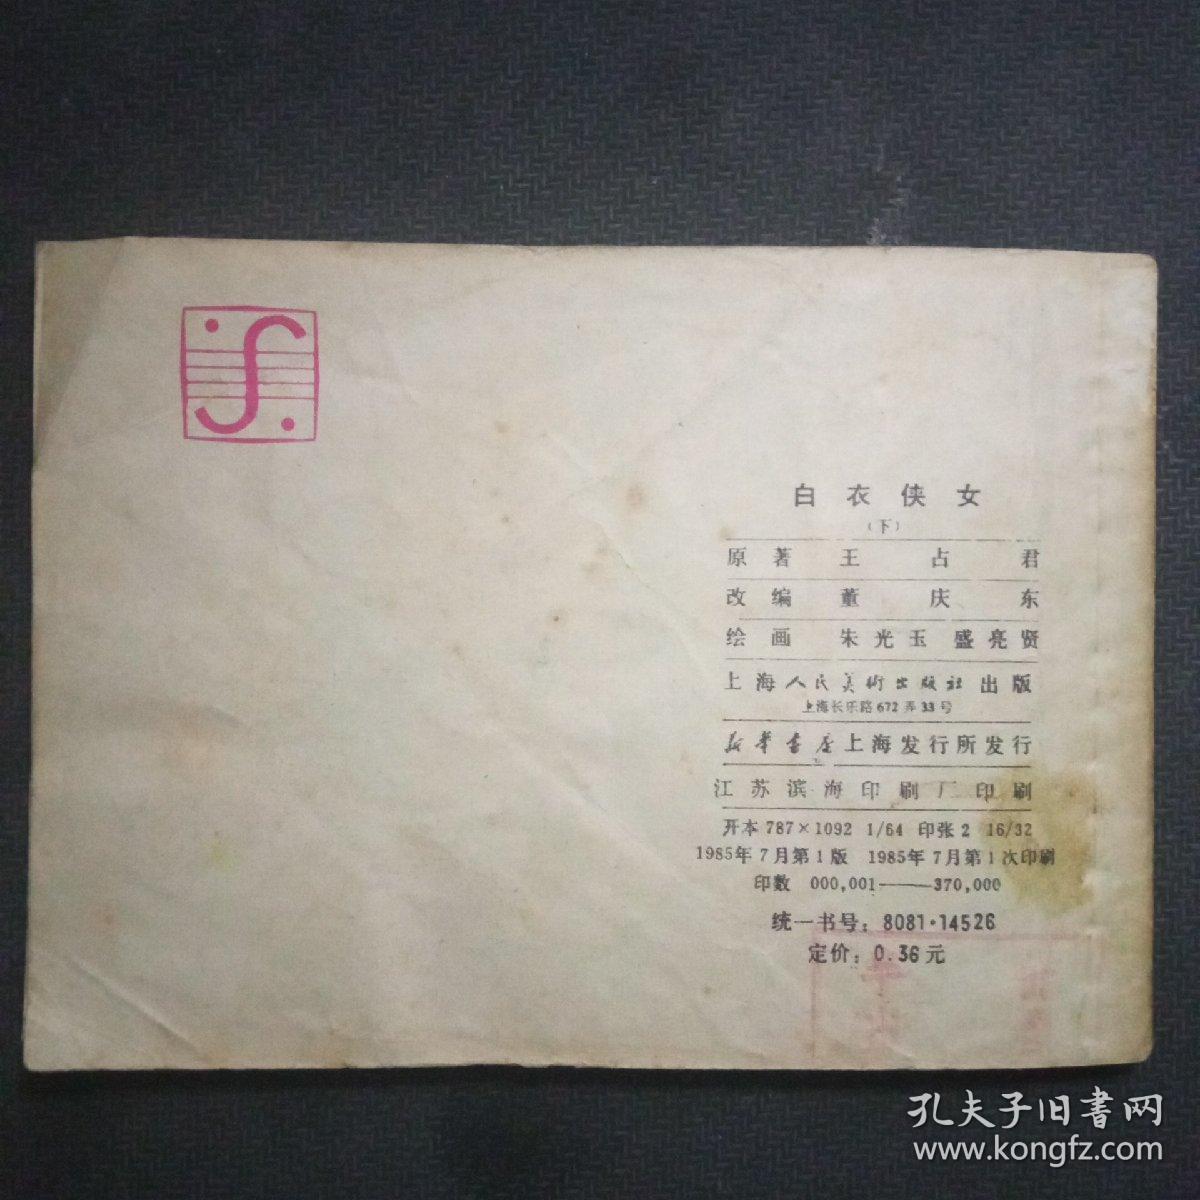 白衣侠女
（下）
原著 王占君
改编 董庆东
绘画 朱光玉 盛亮贤
上海人民美術出版社出版
上海长乐路672弄33号
新华书店上海发行所发行
江苏滨海印刷厂印刷
开本 787×1092 1/64 印张 2 16/32
1985年7月第1版 1985年7月第1次印刷
印数 000,001——370,000
统一书号：8081·14526
定价：0.36元
孔夫子旧書网
www.kongfz.com